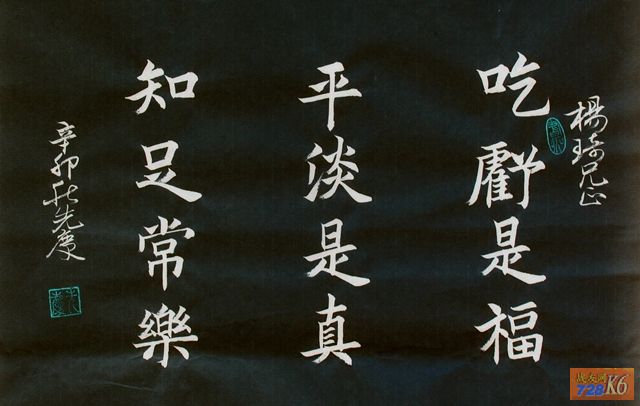 楊兄正
吃虧是福
平淡是真
知足常樂
辛卯秋先
728K6